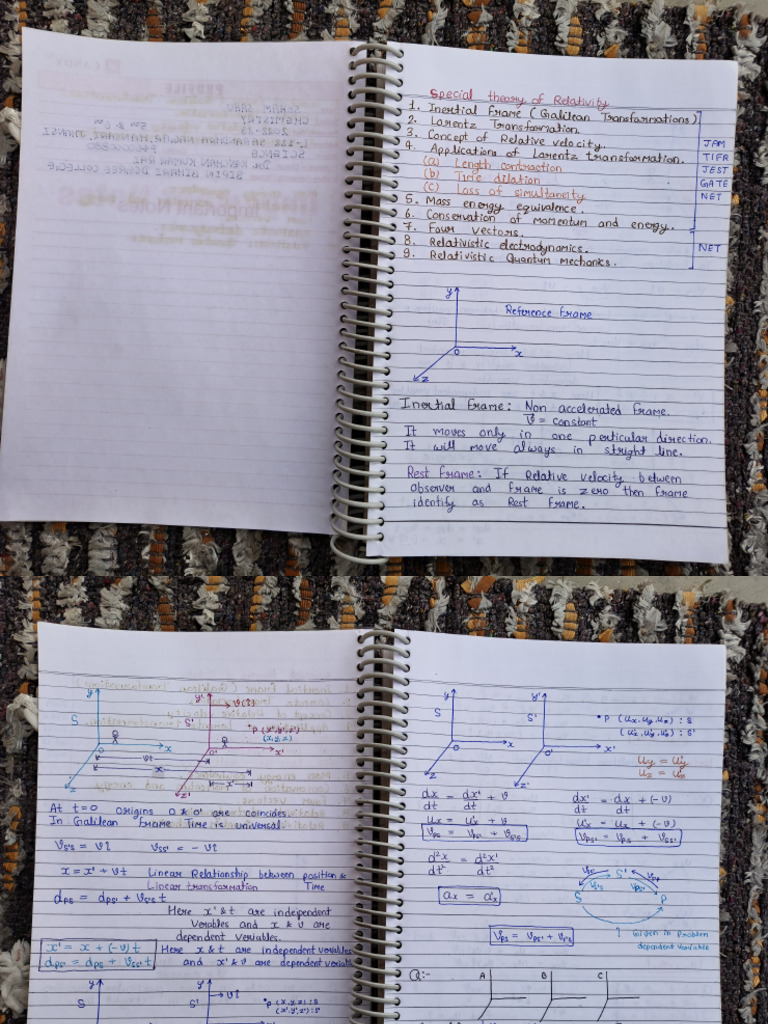 Special theory of Relativity
1. Inertial Frame (Galilean Transformations)
2. Lorentz Transformation.
3. Concept of Relative velocity.
4. Applications of Larentz transformation.
(a) Length contraction
(b) Time dilation
(c) Loss of simultaneity
5. Mass energy equivalence.
6. Conservation of momentum and energy.
7. Four vectors.
8. Relativistic electrodynamics.
9. Relativistic Quantum mechanics.
JAM
TIFR
JEST
GATE
NET
NET
y
Reference Frame
O
x
z
Inertial Frame: Non accelerated frame.
v⃗ = constant
It moves only in one perticular direction.
It will move always in stright line.
Rest Frame: If Relative velocity between
observer and frame is zero then frame
identify as Rest Frame.
y y' v(î)
S S' •P (x', y', z')
(x, y, z)
O x O' x'
vt
x x'
z z'
At t=0 origins O & O' are coincides.
In Galilean Frame Time is universal.
V_S'S = vî V_SS' = -vî
x = x' + vt Linear Relationship between position &
Linear transformation Time
d_PS = d_PS' + V_S'S t
Here x' & t are independent
Verables and x & v are
dependent variables.
x' = x + (-v)t Here x & t are independent variables
d_PS' = d_PS + V_SS' t and x' & v are dependent variabl
y y'
S S' vî •P (x, y, z) : S
(x', y', z') : S'
y y'
S S' •P (u_x, u_y, u_z) : S
(u'_x, u'_y, u'_z) : S'
O x O' x'
z z'
u_y = u'_y
u_z = u'_z
dx/dt = dx'/dt + v dx'/dt = dx/dt + (-v)
u_x = u'_x + v u'_x = u_x + (-v)
V_PS = V_PS' + V_S'S V_PS' = V_PS + V_SS'
d²x/dt² = d²x'/dt²
a_x = a'_x
S S' P
V_PS = V_PS' + V_S'S
↑ Given in Problem
dependent variable
Q:- A B C